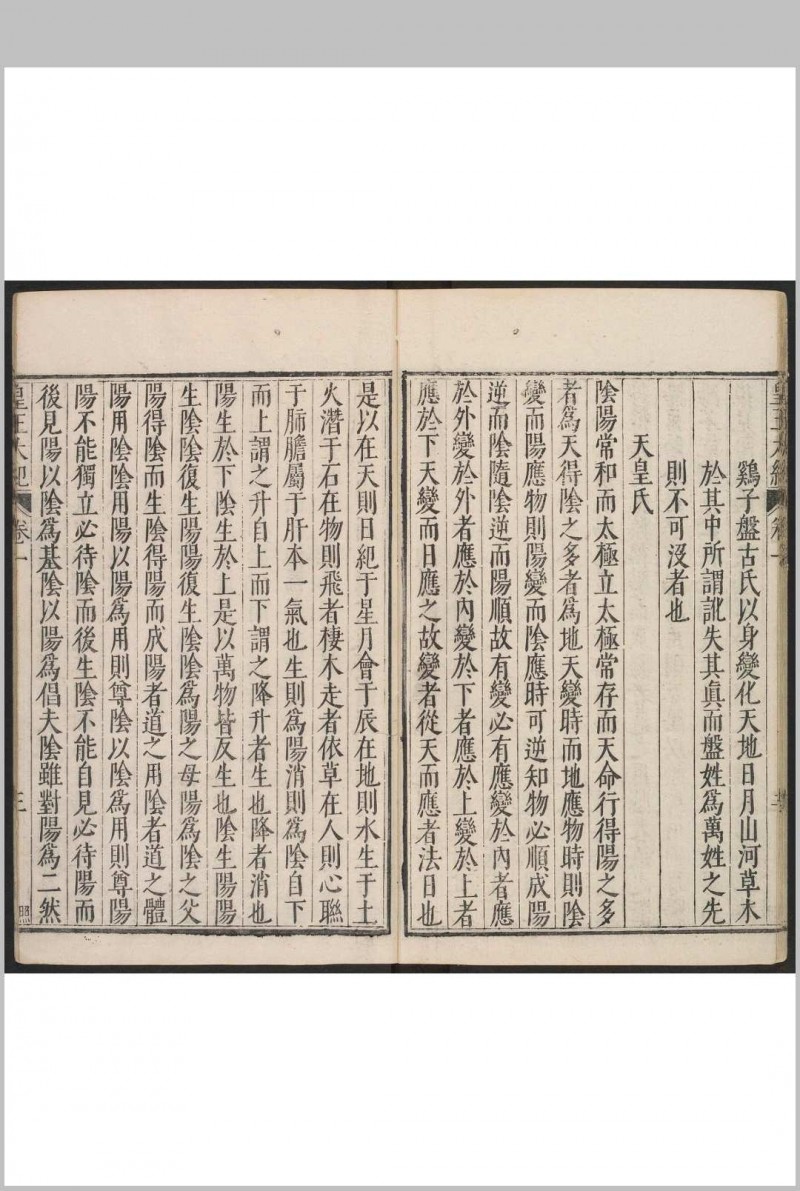 鷄子盤古氏以身變化天地日月山河草木
於其中所謂訛失其眞而盤姓爲萬姓之先
則不可沒者也
天皇氏
陰陽常和而太極立太極常存而天命行得陽之多
者爲天得陰之多者爲地天變時而地應物時則陰
變而陽應物則陽變而陰應時可逆知物必順成陽
逆而陰隨陰逆而陽順故有變必有應變於內者應
於外變於外者應於內變於下者應於上變於上者
應於下天變而日應之故變者從天而應者法日也
是以在天則日紀于星月會于辰在地則水生于土
火潛于石在物則飛者棲木走者依草在人則心聯
于肺膽屬于肝本一氣也生則爲陽消則爲陰自下
而上謂之升自上而下謂之降升者生也降者消也
陽生於下陰生於上是以萬物皆反生也陰生陽陽
生陰陰復生陽陽復生陰陰爲陽之母陽爲陰之父
陽得陰而生陰得陽而成陽者道之用陰者道之體
陽用陰陰用陽以陽爲用則尊陰以陰爲用則尊陽
陽不能獨立必待陰而後生陰不能自見必待陽而
後見陽以陰爲基陰以陽爲倡夫陰雖對陽爲二然
皇王大紀
卷一
三